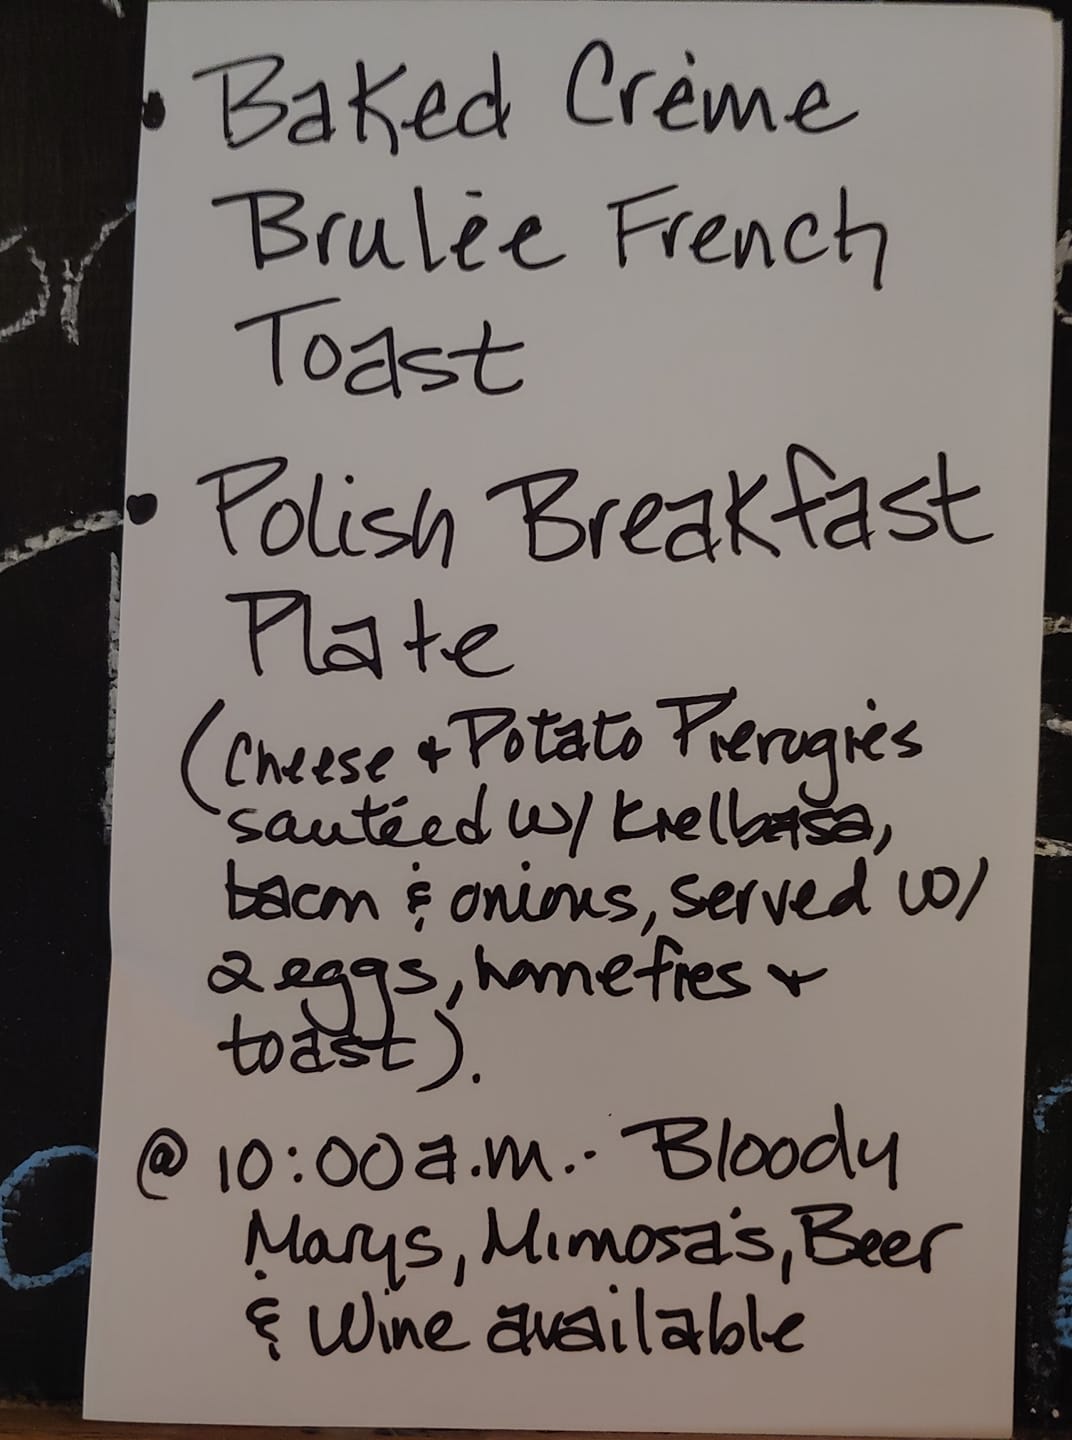 • Baked Créme
Brulée French
Toast
• Polish Breakfast
Plate
(Cheese + Potato Pierogies
sautéed w/ Kielbasa,
bacon & onions, served w/
2 eggs, homefries +
toast).
@ 10:00 a.m.. Bloody
Marys, Mimosa's, Beer
& Wine available